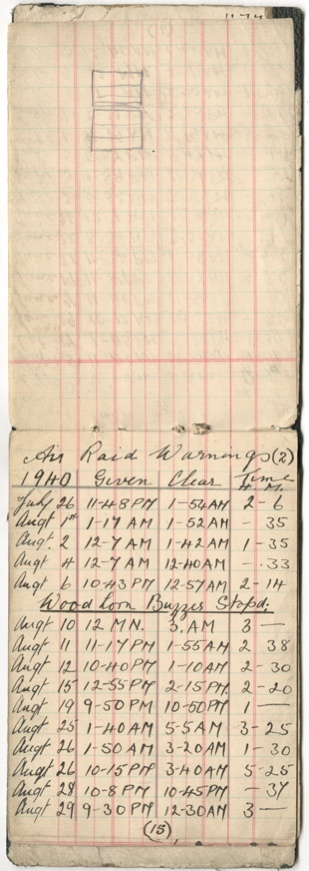 Air Raid Warnings (2)
1940 Given Clear Time
H. M.
July 26 11-48 PM 1-54 AM 2-6
Augt 1st 1-17 AM 1-52 AM - 35
Augt. 2 12-7 AM 1-42 AM 1-35
Augt 4 12-7 AM 12-40 AM -.33
Augt 6 10-43 PM 12-57 AM 2-14
Buzzer Stopd.
Augt 10 12 MN. 3. AM 3 —
Augt 11 11-17 PM 1-55 AM 2 38
Augt 12 10-40 PM 1-10 AM 2-30
Augt 15 12-55 PM 2-15 PM. 2-20
Augt 19 9-50 PM 10-50 PM 1 —
Augt 25 1-40 AM 5-5 AM 3-25
Augt 26 1-50 AM 3-20 AM 1-30
Augt 26 10-15 PM 3-40 AM 5-25
Augt 28 10-8 PM 10-45 PM - 37
Augt 29 9-30 PM 12-30 AM 3 —
(15)